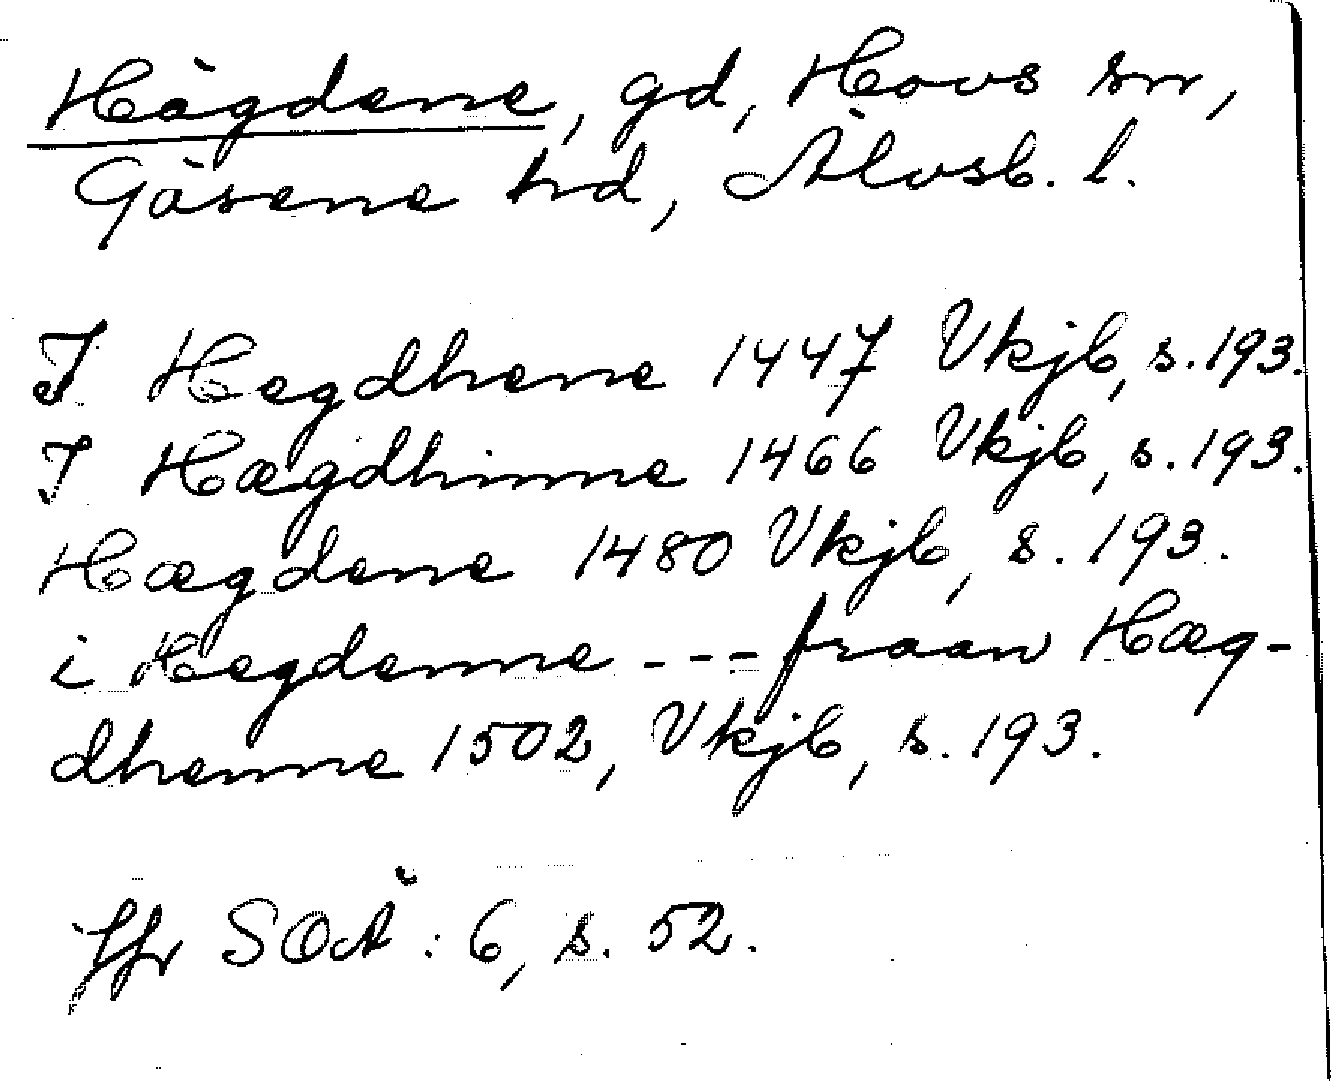 Hägdene, gd, Hovs sn,
Gäsene hd, Älvsb. l.
J Hegdhene 1447 Vkjb, s. 193.
J Hægdhinne 1466 Vkjb, s. 193.
Hægdene 1480 Vkjb, s. 193.
i Hegdenne --- fraan Hæg-
dhenne 1502, Vkjb, s. 193.
Jfr SOÄ: 6, s. 52.